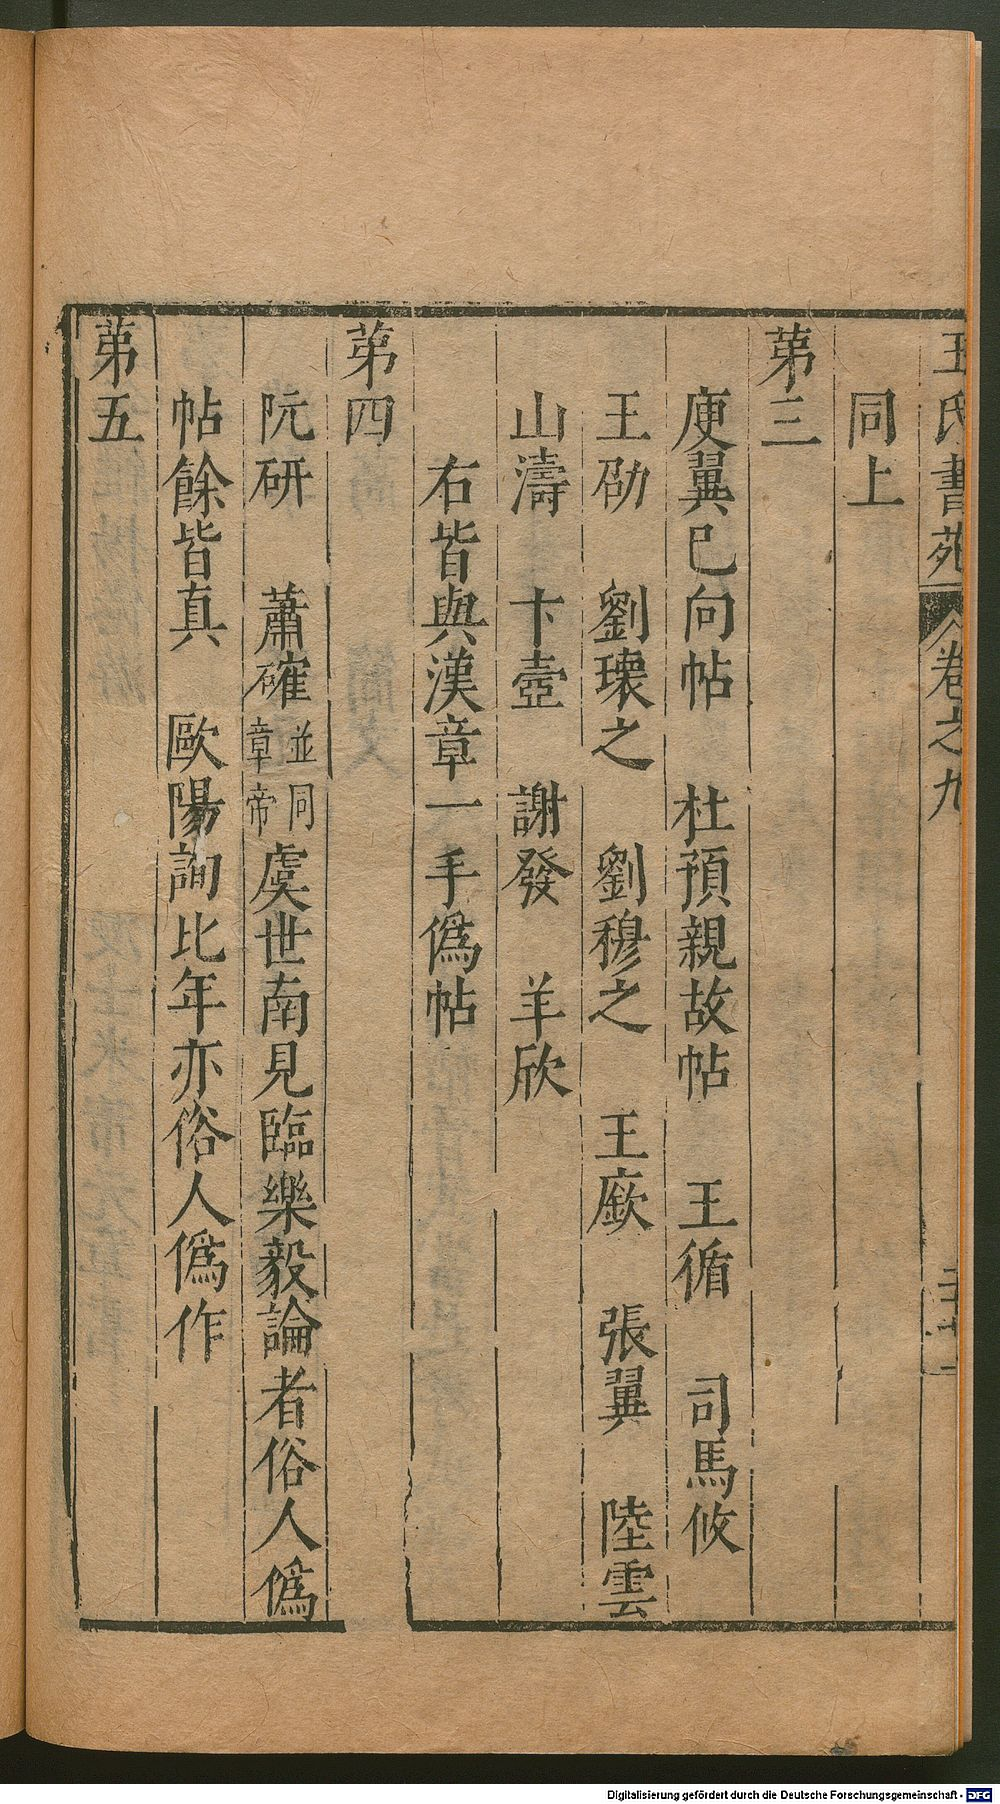 王氏書苑 卷之九
同上
第三
庾翼已向帖 杜預親故帖 王循 司馬攸
王劭 劉瓌之 劉穆之 王廞 張翼 陸雲
山濤 卞壼 謝發 羊欣
右皆與漢章一手偽帖
第四
阮研 蕭確並同章帝虞世南見臨樂毅論者俗人偽
帖餘皆真 歐陽詢比年亦俗人偽作
第五
Digitalisierung gefördert durch die Deutsche Forschungsgemeinschaft - DFG